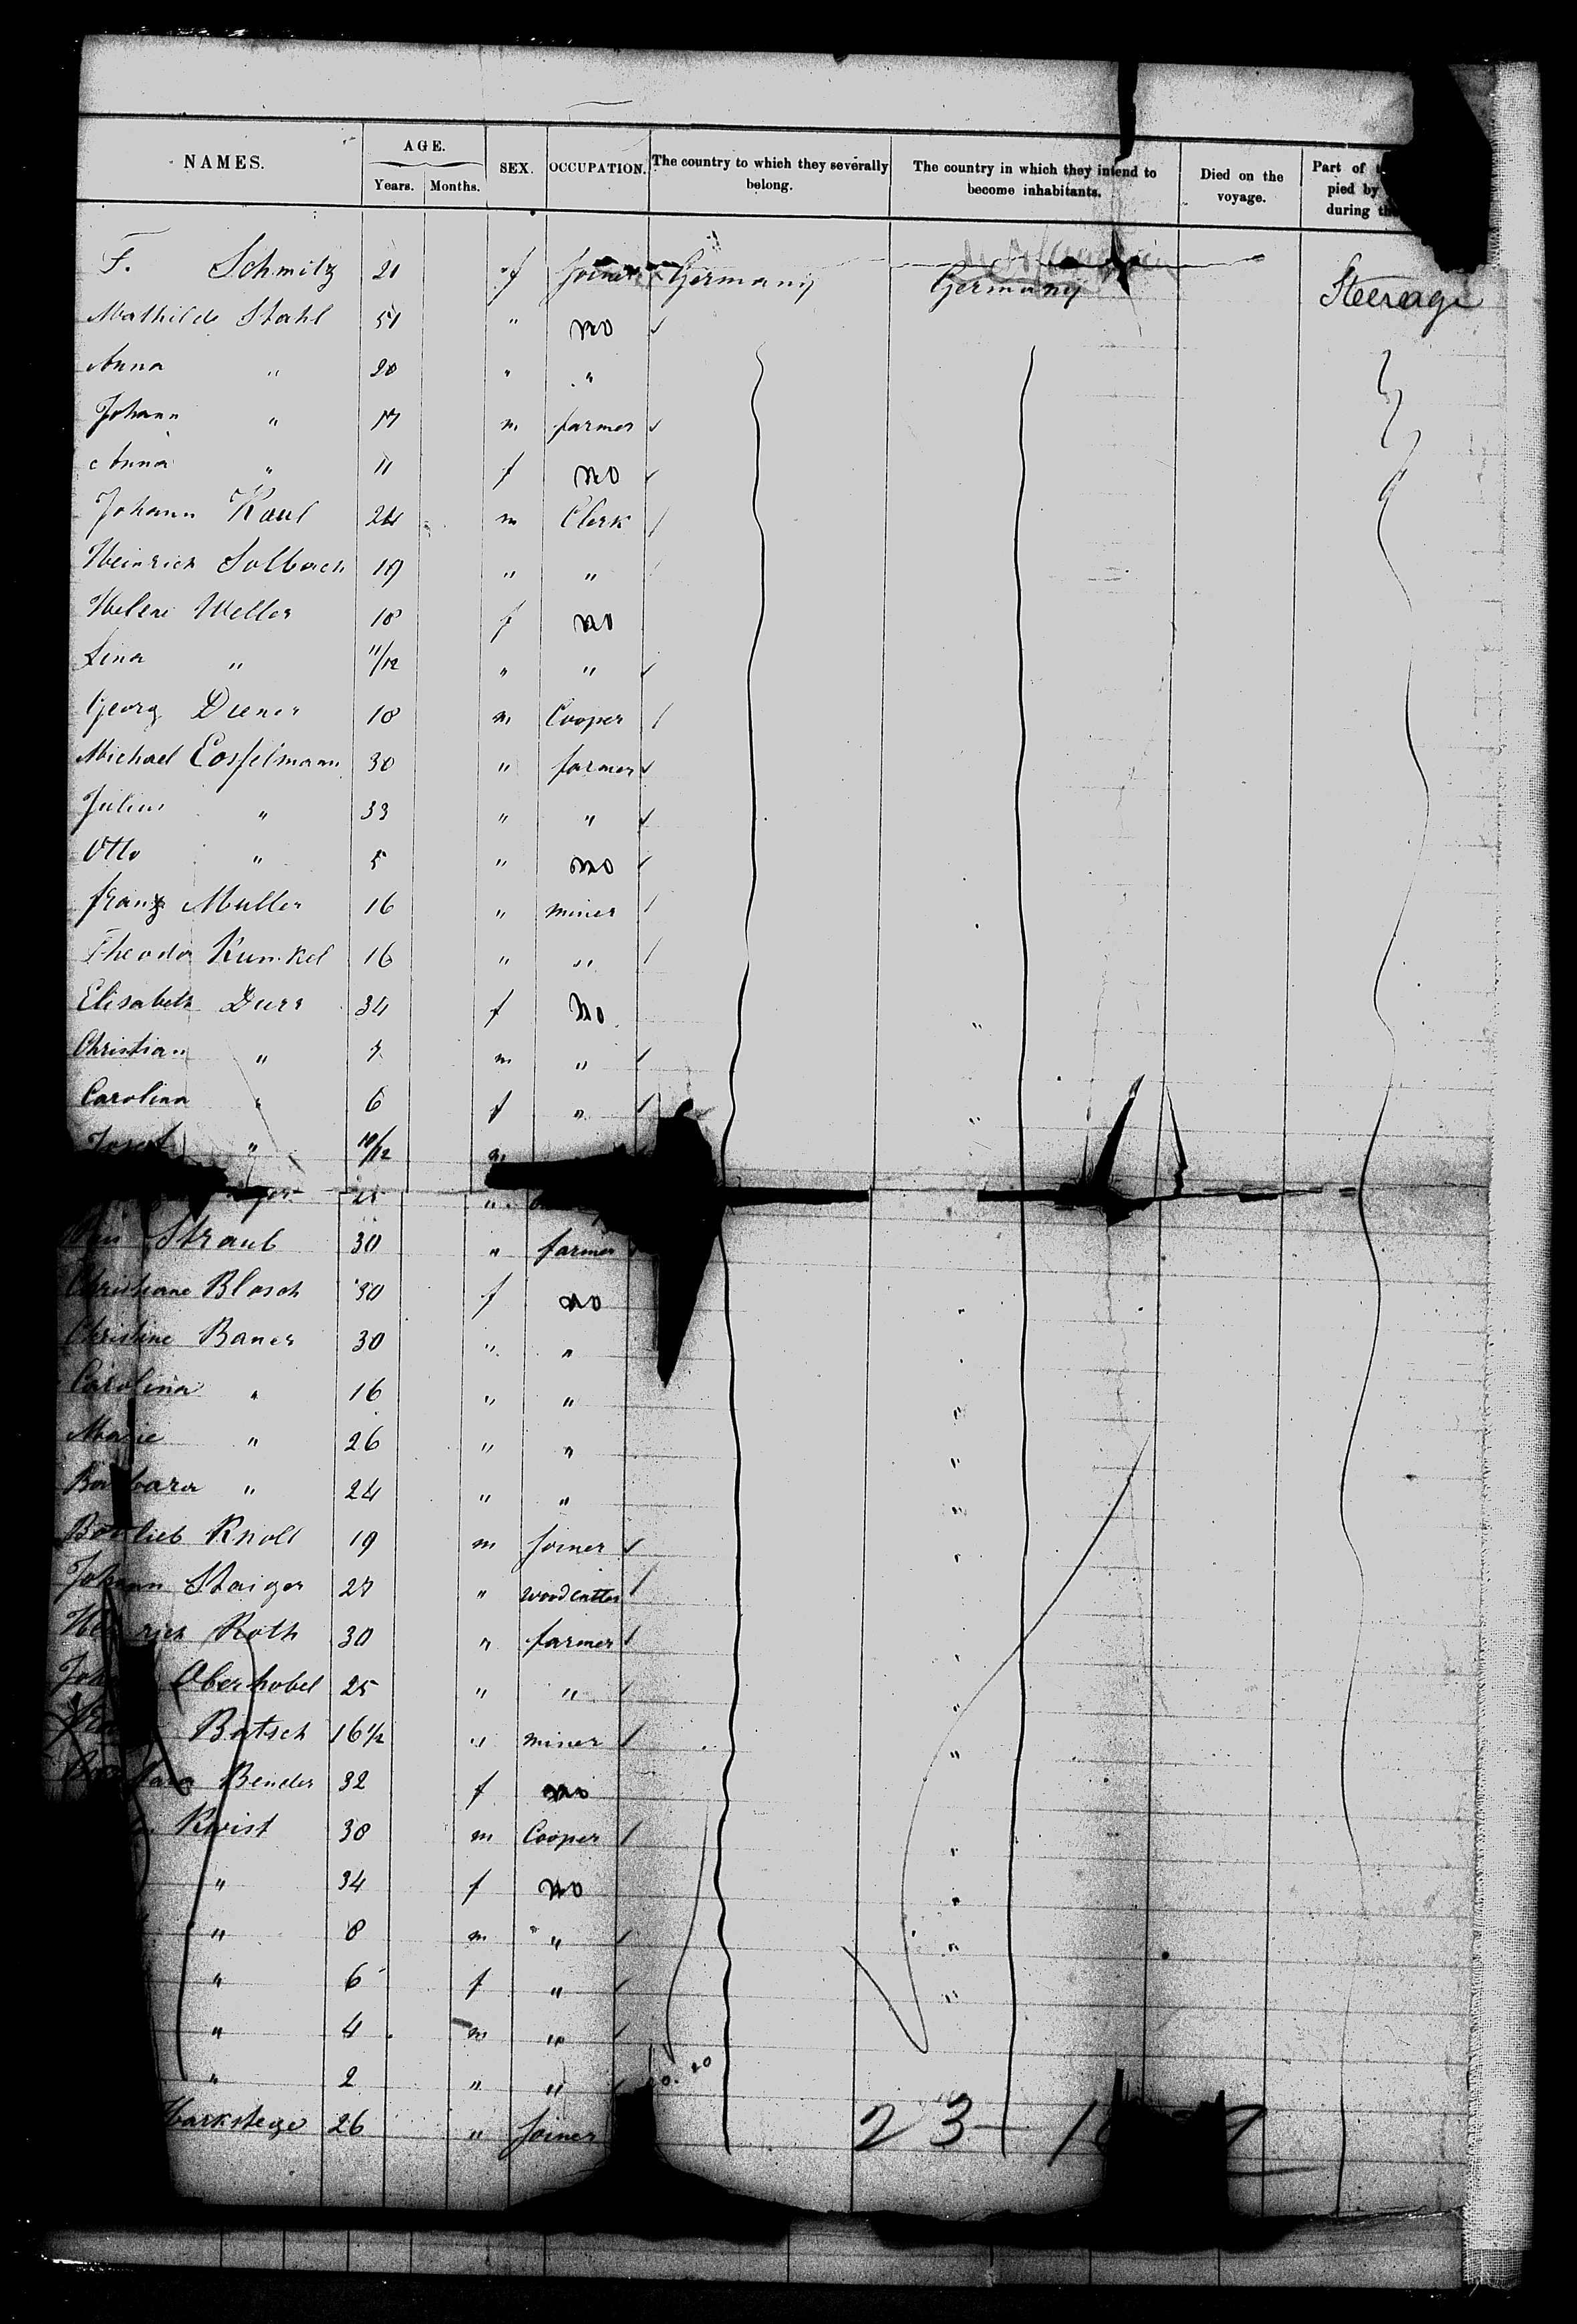 NAMES. AGE. SEX. OCCUPATION. The country to which they severally belong. The country in which they intend to become inhabitants. Died on the voyage. Part of pied by during
Years. Months.
F. Schmitz 21 f joiner Germany Germany Steerage
Mathilde Stahl 51 " no
Anna " 20 " "
Johann " 17 m farmer
Anna " 11 f no
Johann Kaul 24 m Clerk
Heinrich Solbach 19 " "
Helene Weller 18 f no
Lina " 11/12 " "
Georg Diener 18 m Cooper
Michael 30 " farmer
Julius " 33 " "
Otto " 5 " no
Franz Muller 16 " miner
Theodor Kunkel 16 " "
Elisabeth Durr 34 f No
Christian " 7 m "
Carolina " 6 f "
Josef " 10/12 m
25 "
Straub 30 " farmer
Christiane Blosch 30 f no
Christine Bauer 30 " "
Carolina " 16 " "
Marie " 26 " "
Barbara " 24 " "
Knoll 19 m joiner
Johann Staiger 27 " woodcutter
Heinrich Roth 30 " farmer
Oberhobel 25 " "
Batsch 16 1/2 " miner
Bender 32 f no
Kwist 38 m Cooper
" 34 f no
" 8 m "
" 6 f "
" 4 m "
" 2 " "
Harkstege 26 " joiner
23